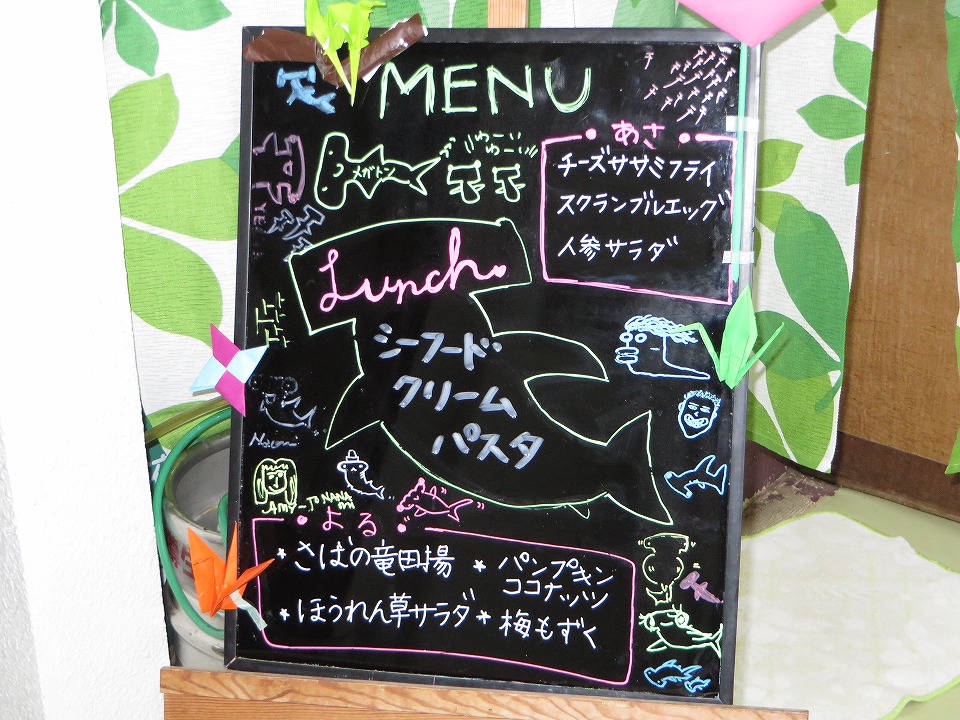 MENU
メガトン
ゆーい
ゆーい
あさ
チーズササミフライ
スクランブルエッグ
人参サラダ
Lunch.
シーフード
クリーム
パスタ
よる
★さばの竜田揚
★パンプキン
ココナッツ
★ほうれん草サラダ
★梅もずく